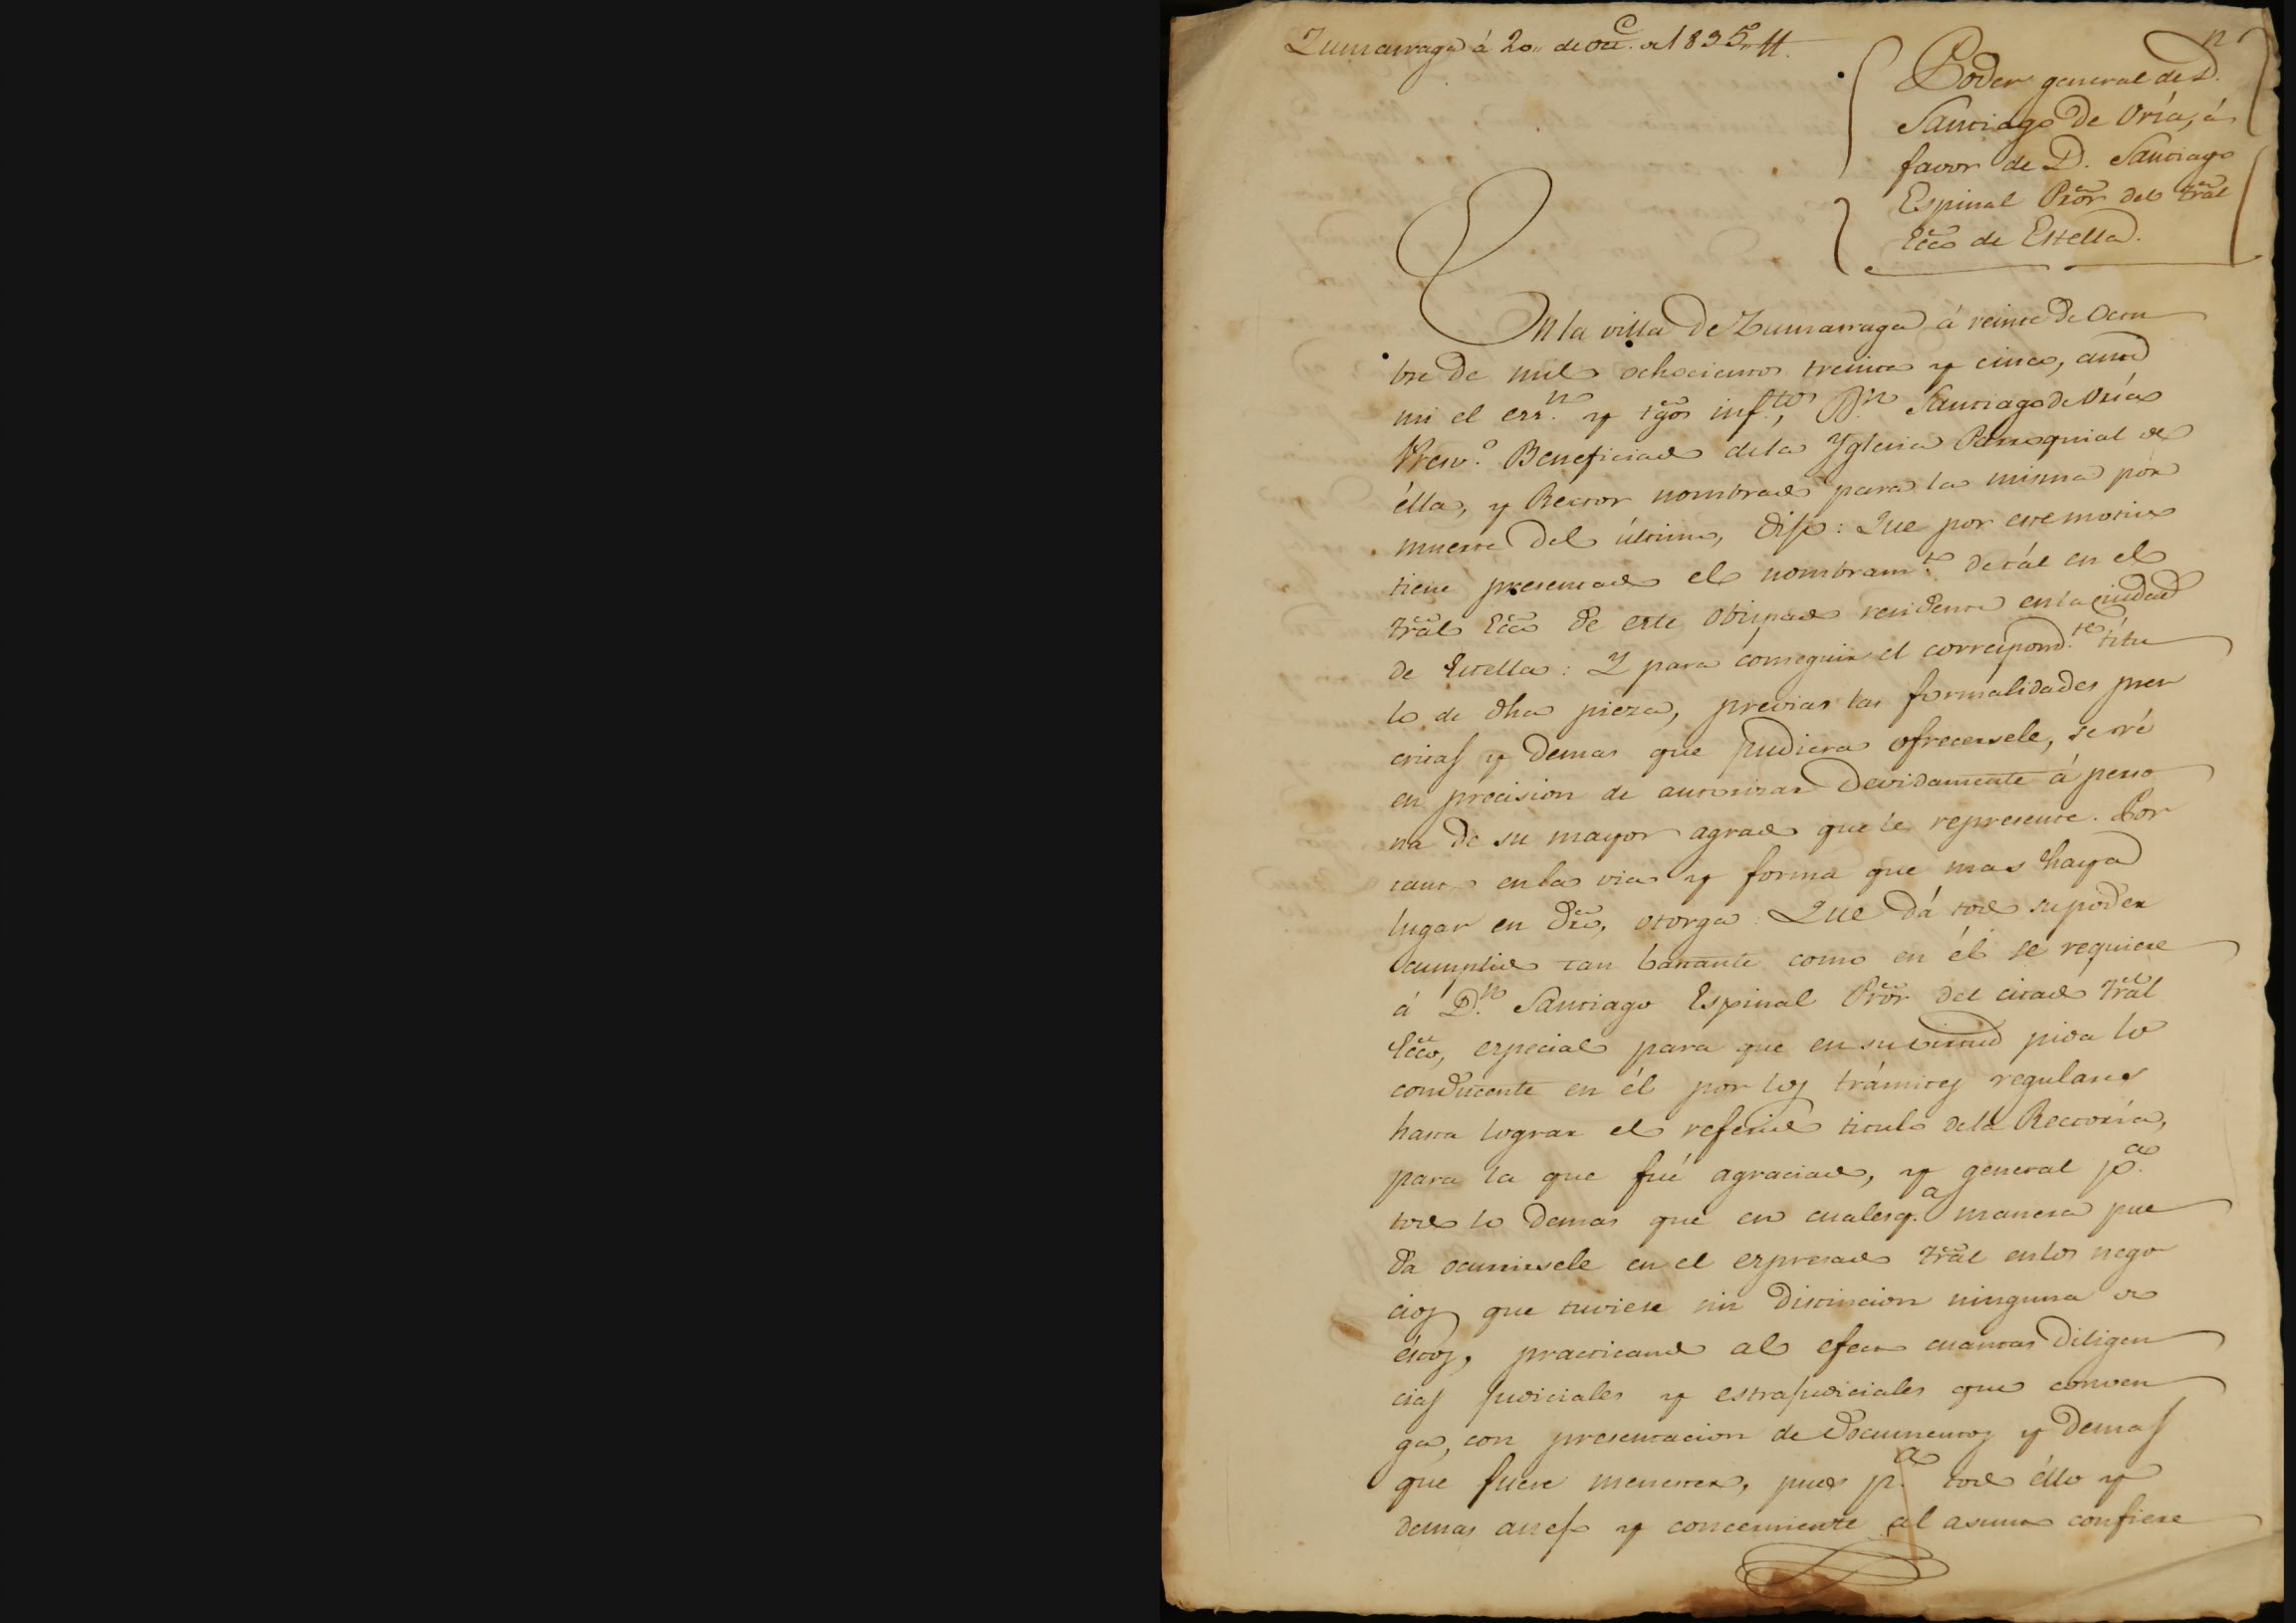 Zumarraga á 20,, de Oct.e de 1835,, #.
Poder general de D.n
Santiago de Oría, á
favor de D. Santiago
Espinal Pror del Tral
Ecco de Estella.
En la villa de Zumarraga á veinte de Octu
bre de mil ochocientos treinta y cinco, ante
mi el ess.no y tgos inf.tos, D.n Santiago de Oría
Presv.o Beneficiado de la Yglesia Parroquial de
élla, y Rector nombrado para la misma por
muerte del último, dijo: Que por este motivo
tiene presentado el nombram.to de tál en el
Tral Ecco de este Obispado residente en la ciudad
de Estella: Y para conseguir el correspond.te títu
lo de dha pieza, previas las formalidades pres
critas y demas que pudiera ofrecersele, se vé
en precision de autorizar devidamente á perso
na de su mayor agrado que le represente. Por
tanto en la via y forma que mas haya
lugar en dro, otorga: Que dá todo su poder
cumplido tan bastante como en él se requiere
á D.n Santiago Espinal Pror del citado Tral
Ecco, especial para que en su virtud pida lo
conducente en él por los trámites regulares
hasta lograr el referido titulo de la Rectoría,
para la que fué agraciado, y general p.a
todo lo demas que en cualesq.a manera pue
da ocurrirsele en el expresado Tral en los nego
cios que tuviere sin distincion ninguna de
éstos, practicando al efecto cuantas diligen
cias judiciales y estrajudiciales que conven
ga, con presentacion de documentos y demas
que fuere menester, pues p.a todo éllo y
demas anejo y concerniente al asunto confiere